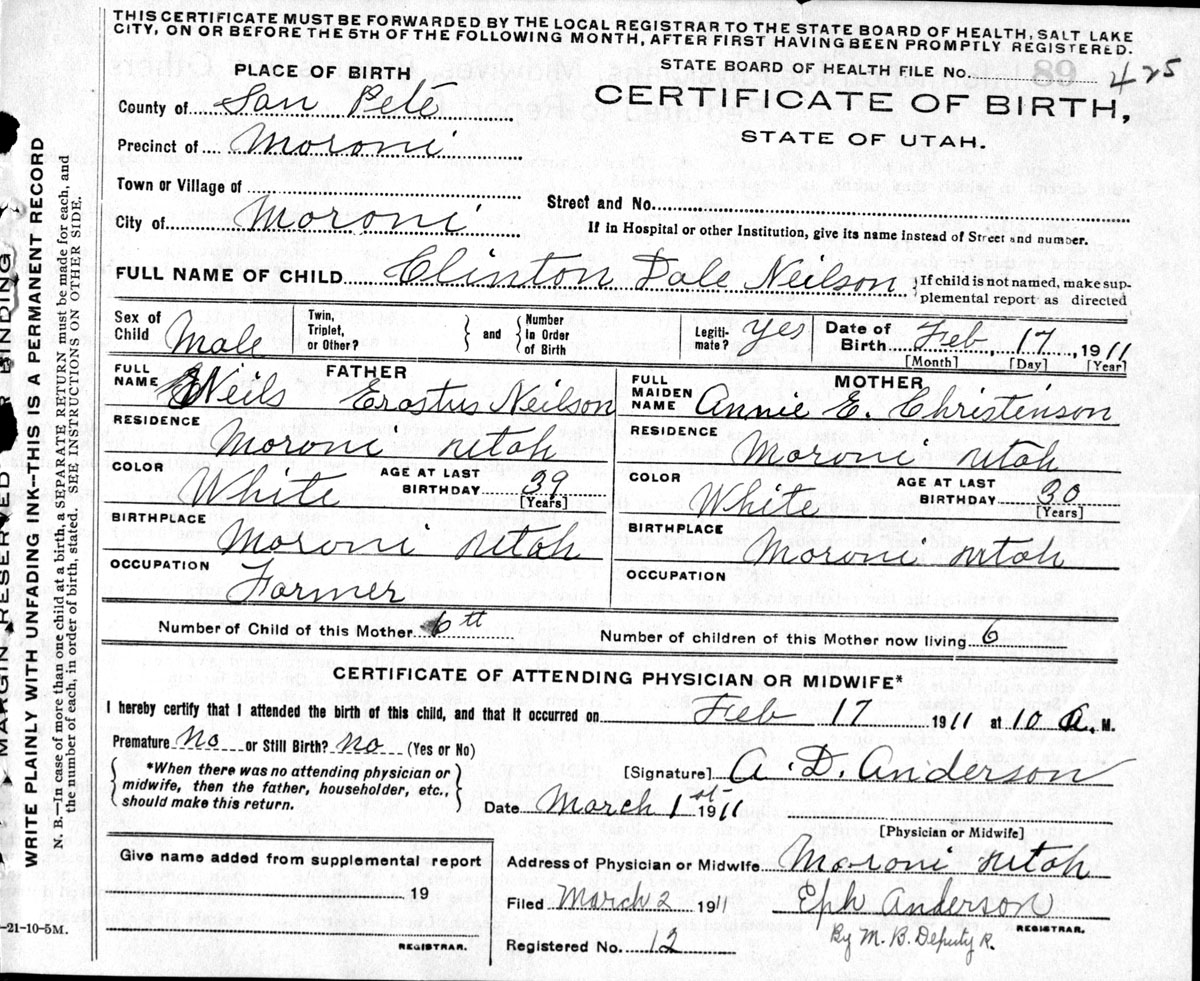 THIS CERTIFICATE MUST BE FORWARDED BY THE LOCAL REGISTRAR TO THE STATE BOARD OF HEALTH, SALT LAKE
CITY, ON OR BEFORE THE 5TH OF THE FOLLOWING MONTH, AFTER FIRST HAVING BEEN PROMPTLY REGISTERED.
STATE BOARD OF HEALTH FILE No. 425
CERTIFICATE OF BIRTH,
STATE OF UTAH.
PLACE OF BIRTH
County of San Pete
Precinct of Moroni
Town or Village of
City of Moroni
Street and No.
If in Hospital or other Institution, give its name instead of Street and number.
FULL NAME OF CHILD Clinton Dale Neilson { If child is not named, make sup-
plemental report as directed
Sex of Child Male Twin, Triplet, or Other? } and { Number in Order of Birth Legiti-mate? yes Date of Birth Feb, 17, 1911
[Month] [Day] [Year]
FATHER
FULL NAME Neils Erastus Neilson
RESIDENCE Moroni Utah
COLOR White AGE AT LAST BIRTHDAY 39 [Years]
BIRTHPLACE Moroni Utah
OCCUPATION Farmer
MOTHER
FULL MAIDEN NAME Annie E. Christenson
RESIDENCE Moroni Utah
COLOR White AGE AT LAST BIRTHDAY 30 [Years]
BIRTHPLACE Moroni Utah
OCCUPATION
Number of Child of this Mother 6th Number of children of this Mother now living 6
CERTIFICATE OF ATTENDING PHYSICIAN OR MIDWIFE*
I hereby certify that I attended the birth of this child, and that it occurred on Feb 17 1911 at 10 A. M.
Premature No or Still Birth? No (Yes or No)
{ *When there was no attending physician or
midwife, then the father, householder, etc.,
should make this return. }
[Signature] A. D. Anderson
Date March 1st 1911
[Physician or Midwife]
Give name added from supplemental report
19
REGISTRAR.
Address of Physician or Midwife Moroni Utah
Filed March 2 1911 Eph Anderson
REGISTRAR.
By M. B. Deputy R.
Registered No. 12
-21-10-5M.
MARGIN RESERVED FOR BINDING
WRITE PLAINLY WITH UNFADING INK--THIS IS A PERMANENT RECORD
N. B.—in case of more than one child at a birth, a SEPARATE RETURN must be made for each, and
the number of each, in order of birth, stated. SEE INSTRUCTIONS ON OTHER SIDE.